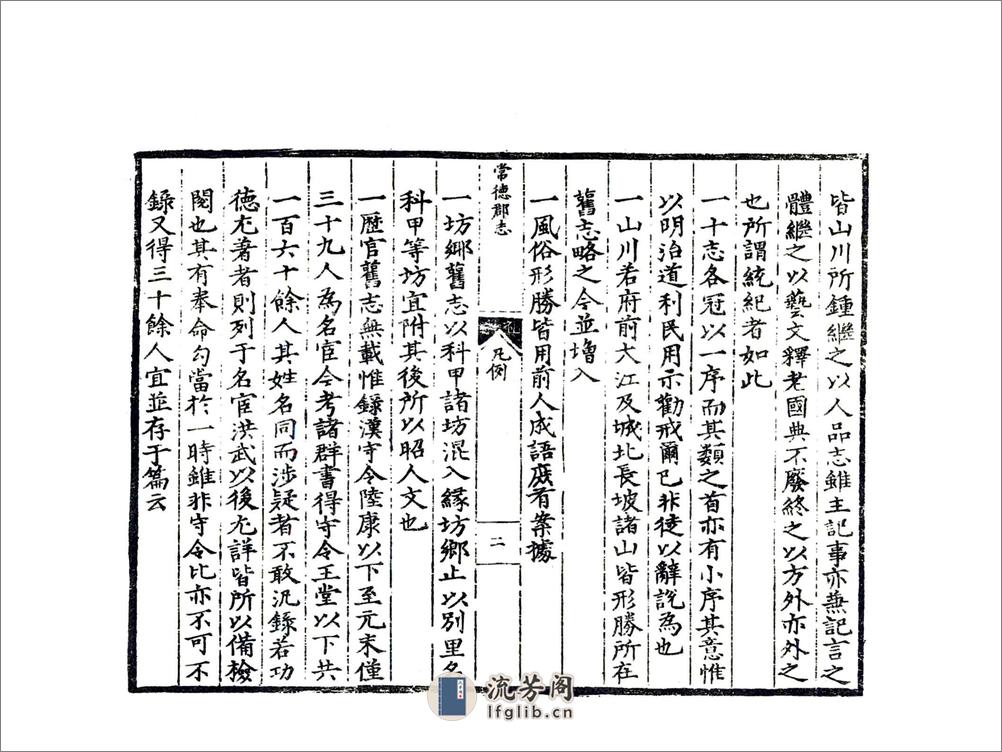 皆山川所鍾繼之以人品志雖主記事亦兼記言之
體繼之以藝文釋老國典不廢終之以方外亦外之
也所謂統紀者如此
一十志各冠以一序而其類之首亦有小序其意惟
以明治道利民用示勸戒爾已非徒以辭說為也
一山川若府前大江及城北長坡諸山皆形勝所在
舊志略之今並增入
一風俗形勝皆用前人成語庶有案據
常德郡志
凡例
二
一坊鄉舊志以科甲諸坊混入緣坊鄉止以別里名
科甲等坊宜附其後所以昭人文也
一歷官舊志無載惟錄漢守令陸康以下至元末僅
三十九人為名宦今考諸群書得守令王堂以下共
一百六十餘人其姓名同而涉疑者不敢汎錄若功
德尤著者則列于名宦洪武以後尤詳皆所以備檢
閱也其有奉命勾當於一時雖非守令比亦不可不
錄又得三十餘人宜並存于篇云
流芳阁
lfglib.cn